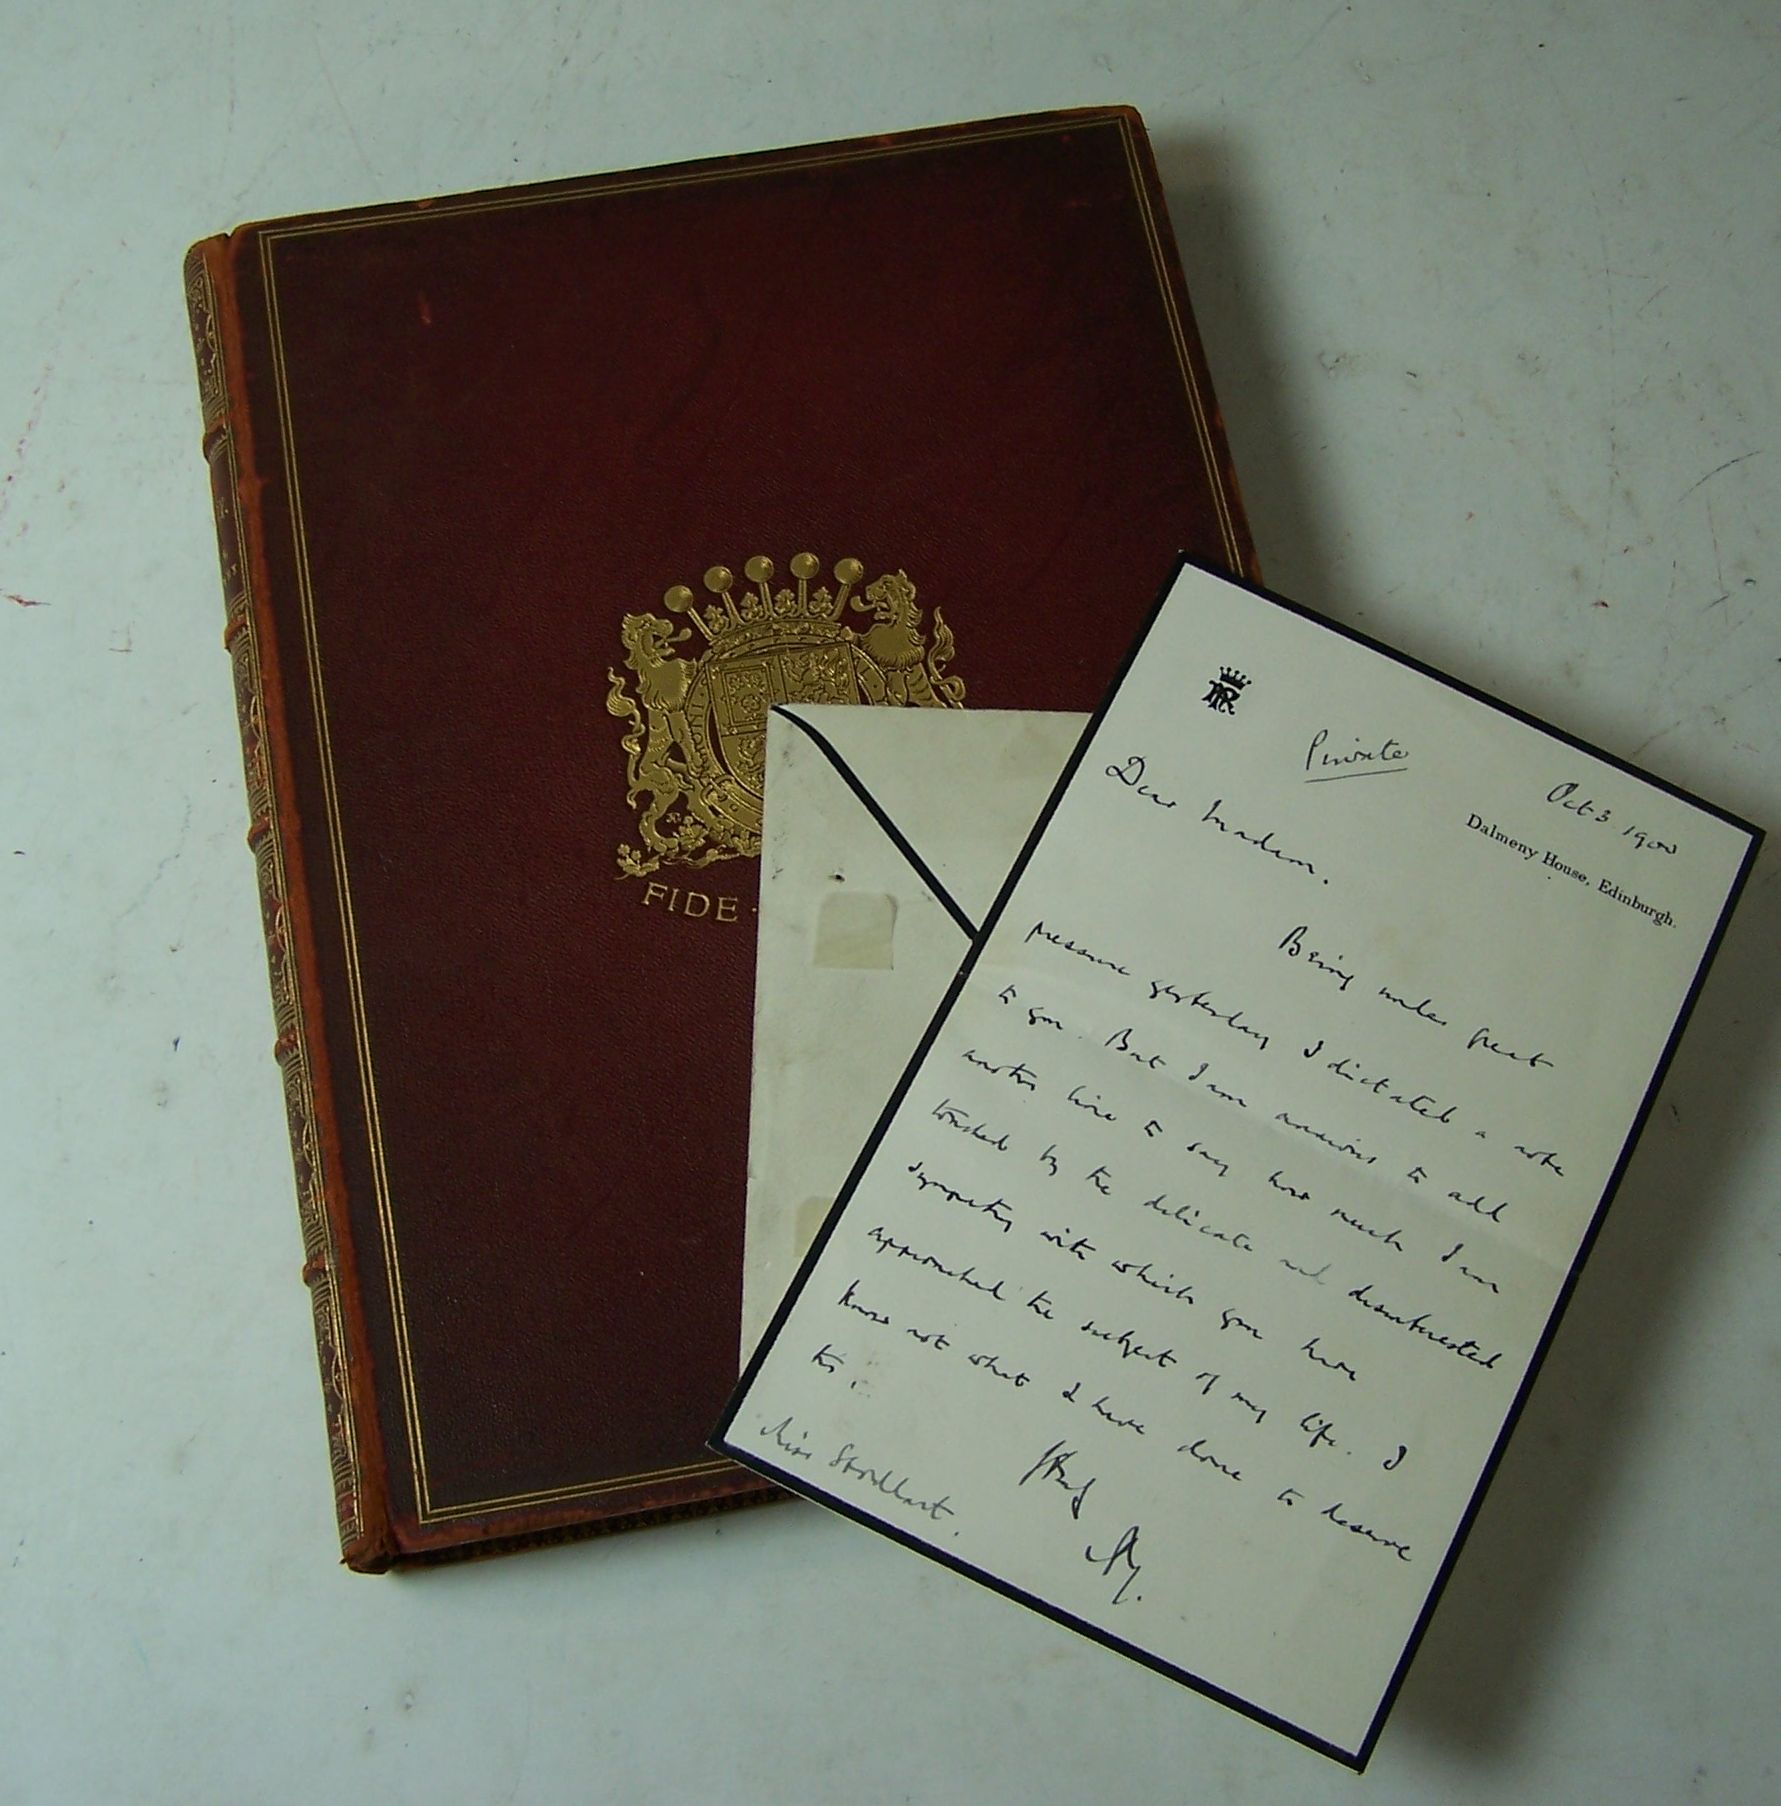 FIDE ·
AR
Private
Oct 3 1900
Dalmeny House, Edinburgh.
Dear Madam.
Being under great
pressure yesterday I dictated a note
to you. But I am anxious to add
another line to say how much I am
touched by the delicate and disinterested
sympathy with which you have
approached the subject of my life. I
know not what I have done to deserve
it.
Miss Stoddart.